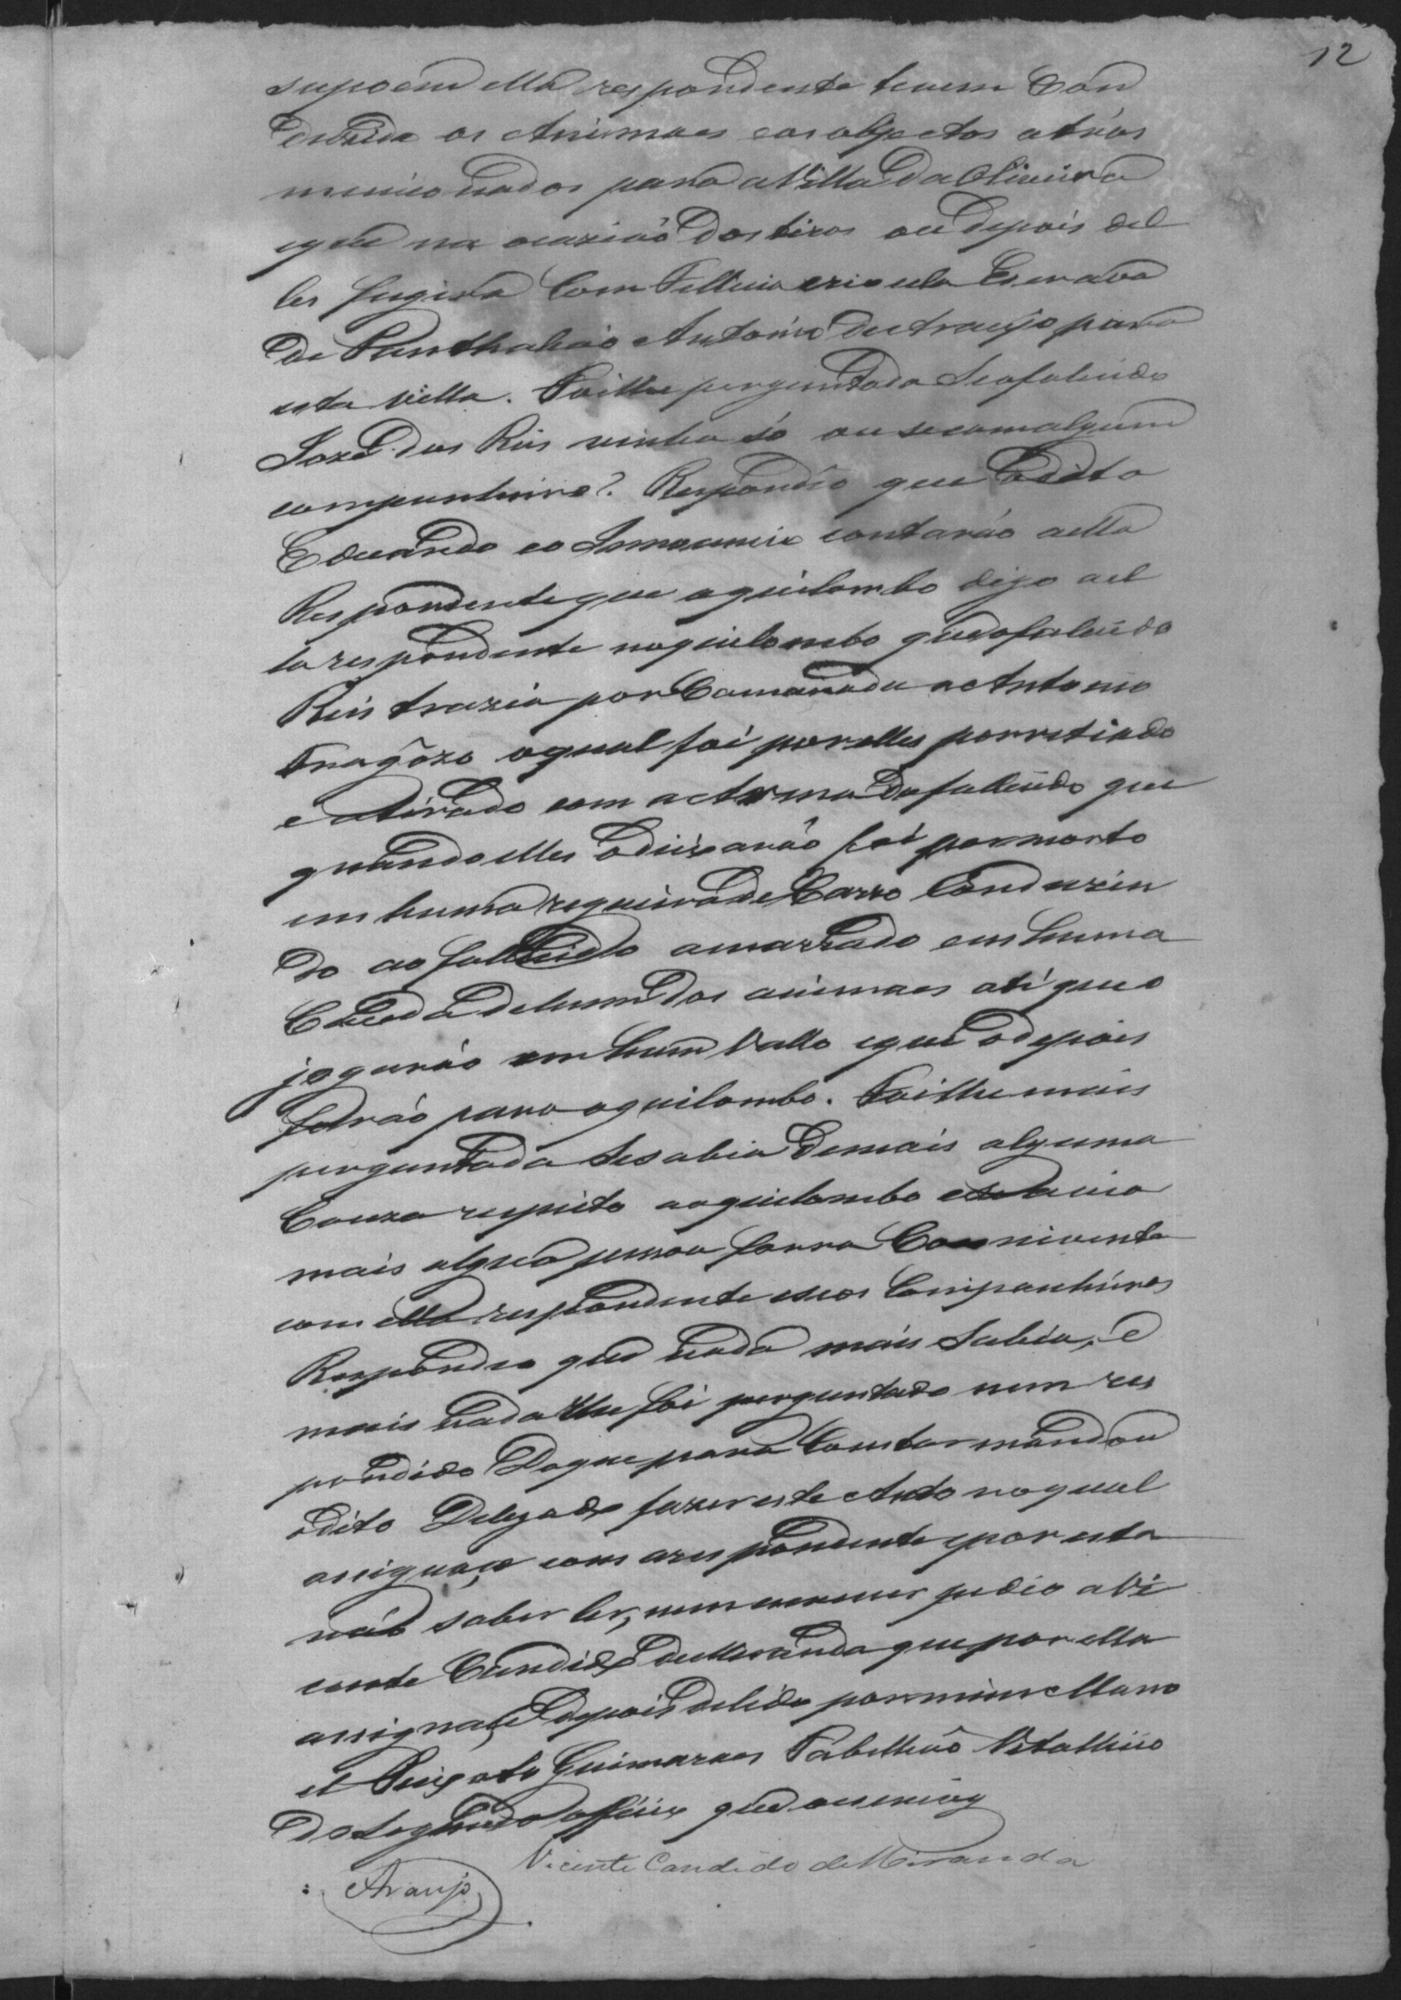 12
supoem ella respondente terem Con
dusido os Animaes eos objectos atrás
mencionados para a Villa da Oliveira
eque na ocazião dos tiros ou depois del
les fugira Com Fellicia crioula Escrava
de Panthalião Antonio de Araujo para
esta Villa. Foilhe perguntada Seofalecido
Jozé dos Reis vinha só ou secomalgum
companheiro? Respondeo que Odito
Eduardo eo Immanuir contarão aella
Respondente que oquilombo digo ael
la respondente noquilombo queofalecido
Reis trazia por Camarada a Antonio
Fragôzo oqual foi porelles porretiado
e Atirado com a Arma dofallecido que
quando elles Odeixarão foi pormorto
em huma regueira de Carro Conduzin
do ao fallecido amarrado em huma
Cauda de hum dos animaes até que o
jogarão em hum Vallo eque odepois
forão para oquilombo. Foilhe mais
perguntada Sesabia de mais alguma
Couza respeito aoquilombo esehavia
mais algua pessoa forra Connivente
com ella respondente eseos Companheiros
Respondeo que nada mais Sabia, e
mais nada lhe foi perguntado nem res
pondido Do que para Constar mandou
odito Delegado fazer este Auto noqual
assignou, com arespondente epor esta
não saber ler, nem escrever pedio a Vi
cente Candido de Miranda que por ella
assignase, depois delido por mim Mano
el Peixoto Guimaraes Tabellião Vitallicio
do Segundo officio que oescrevy
Vicente Candido de Miranda
Araujo